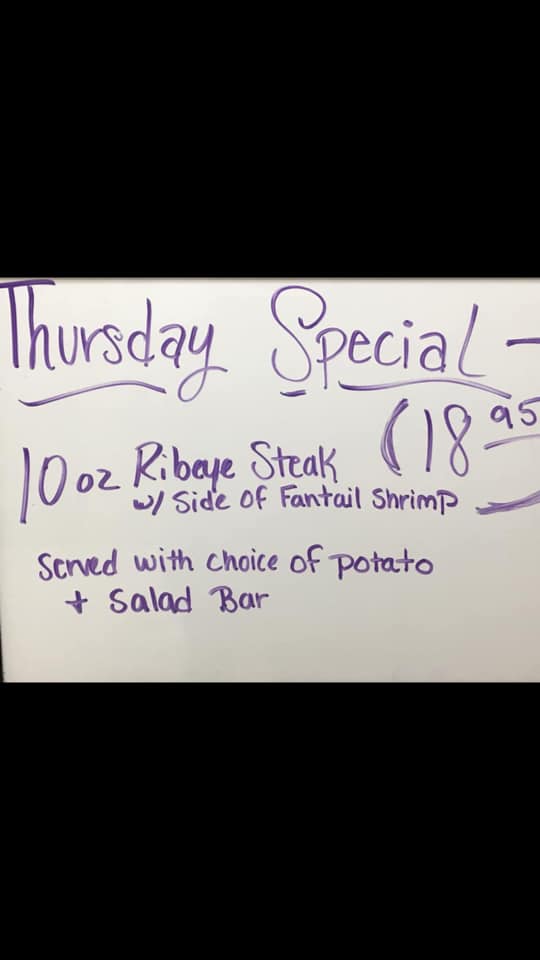 Thursday Special -
(18 95
10 oz Ribeye Steak
w/ Side of Fantail Shrimp
Served with choice of potato
+ Salad Bar